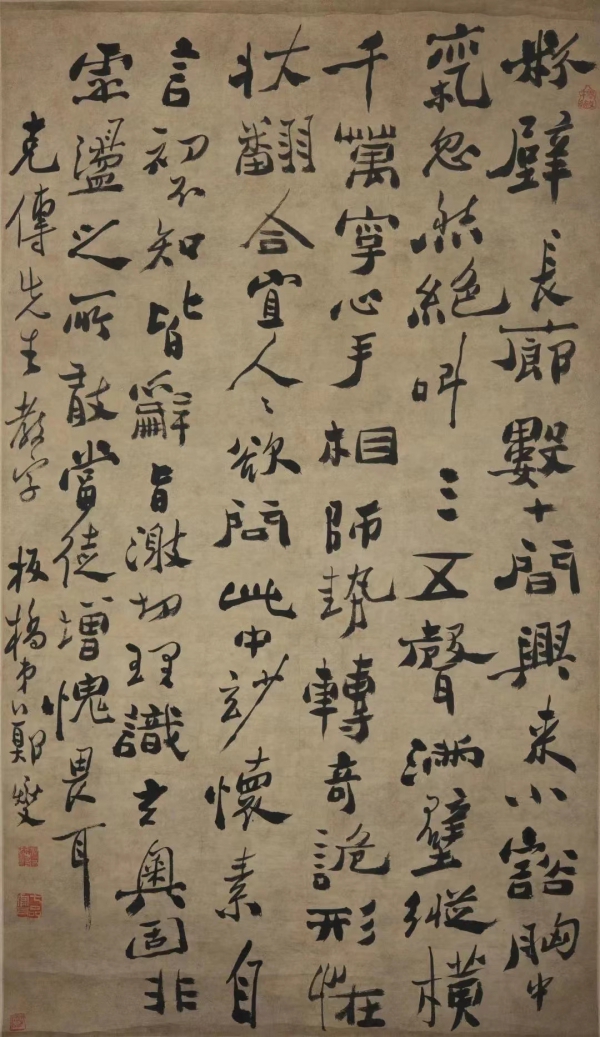 粉壁長廊數十間興来小豁胸中
氣忽然絕叫三五聲滿壁縱橫
千萬字心手相師勢轉奇詭形恠
狀翻合宜人〻欲問此中妙懷素自
言初不知皆辭旨激切理識玄奧固非
虛盪之所敢當徒增愧畏耳
克傳先生教字 板橋弟鄭燮